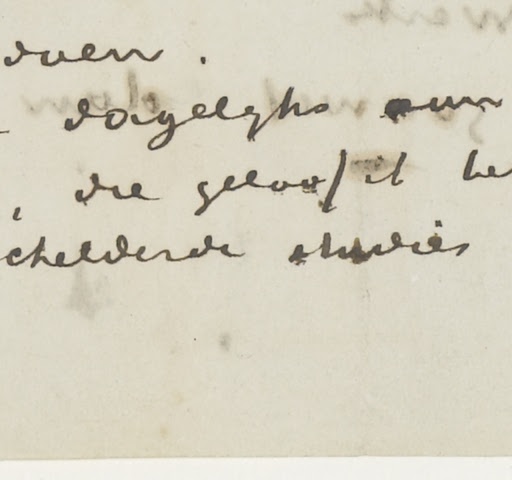 doen.
dagelyks aan
, die geloof ik he
childerde studies